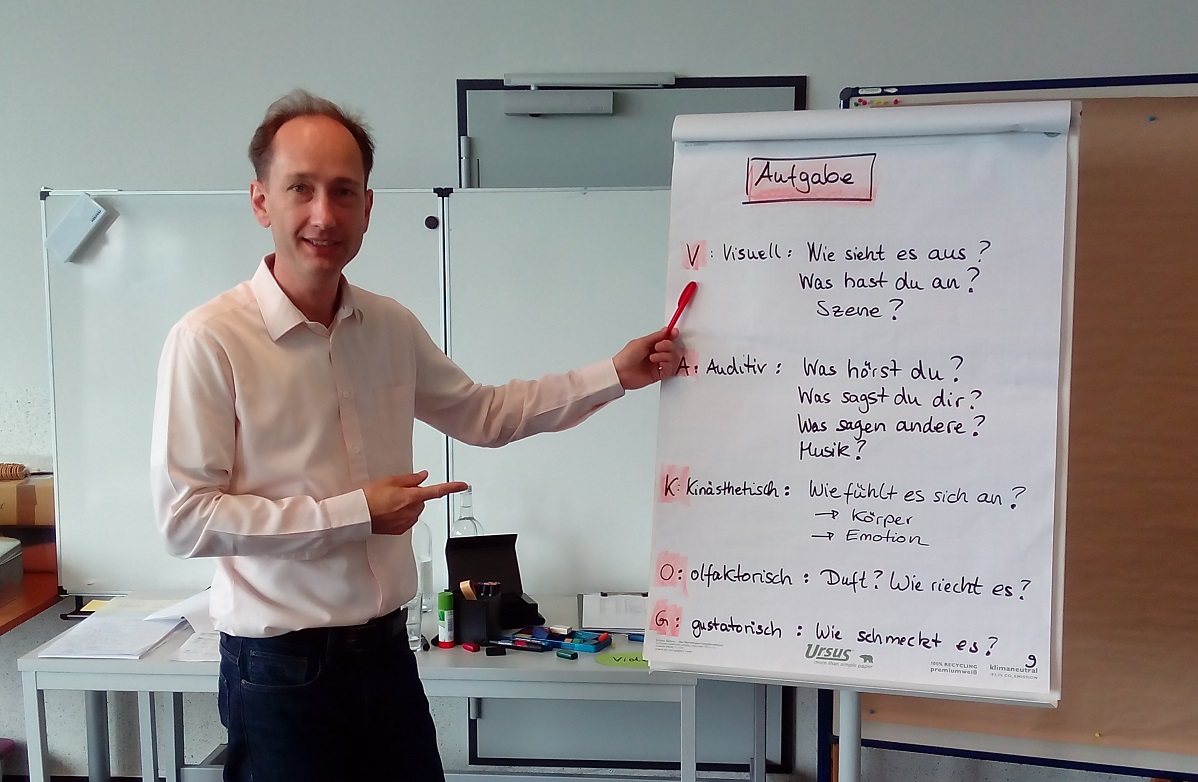 Aufgabe
V: Visuell: Wie sieht es aus?
Was hast du an?
Szene?
A: Auditiv: Was hörst du?
Was sagst du dir?
Was sagen andere?
Musik?
K: Kinästhetisch: Wie fühlt es sich an?
→ Körper
→ Emotion
O: olfaktorisch: Duft? Wie riecht es?
G: gustatorisch: Wie schmeckt es?
Ursus
more than simple paper
100% RECYCLING
premiumweiß
klimaneutral